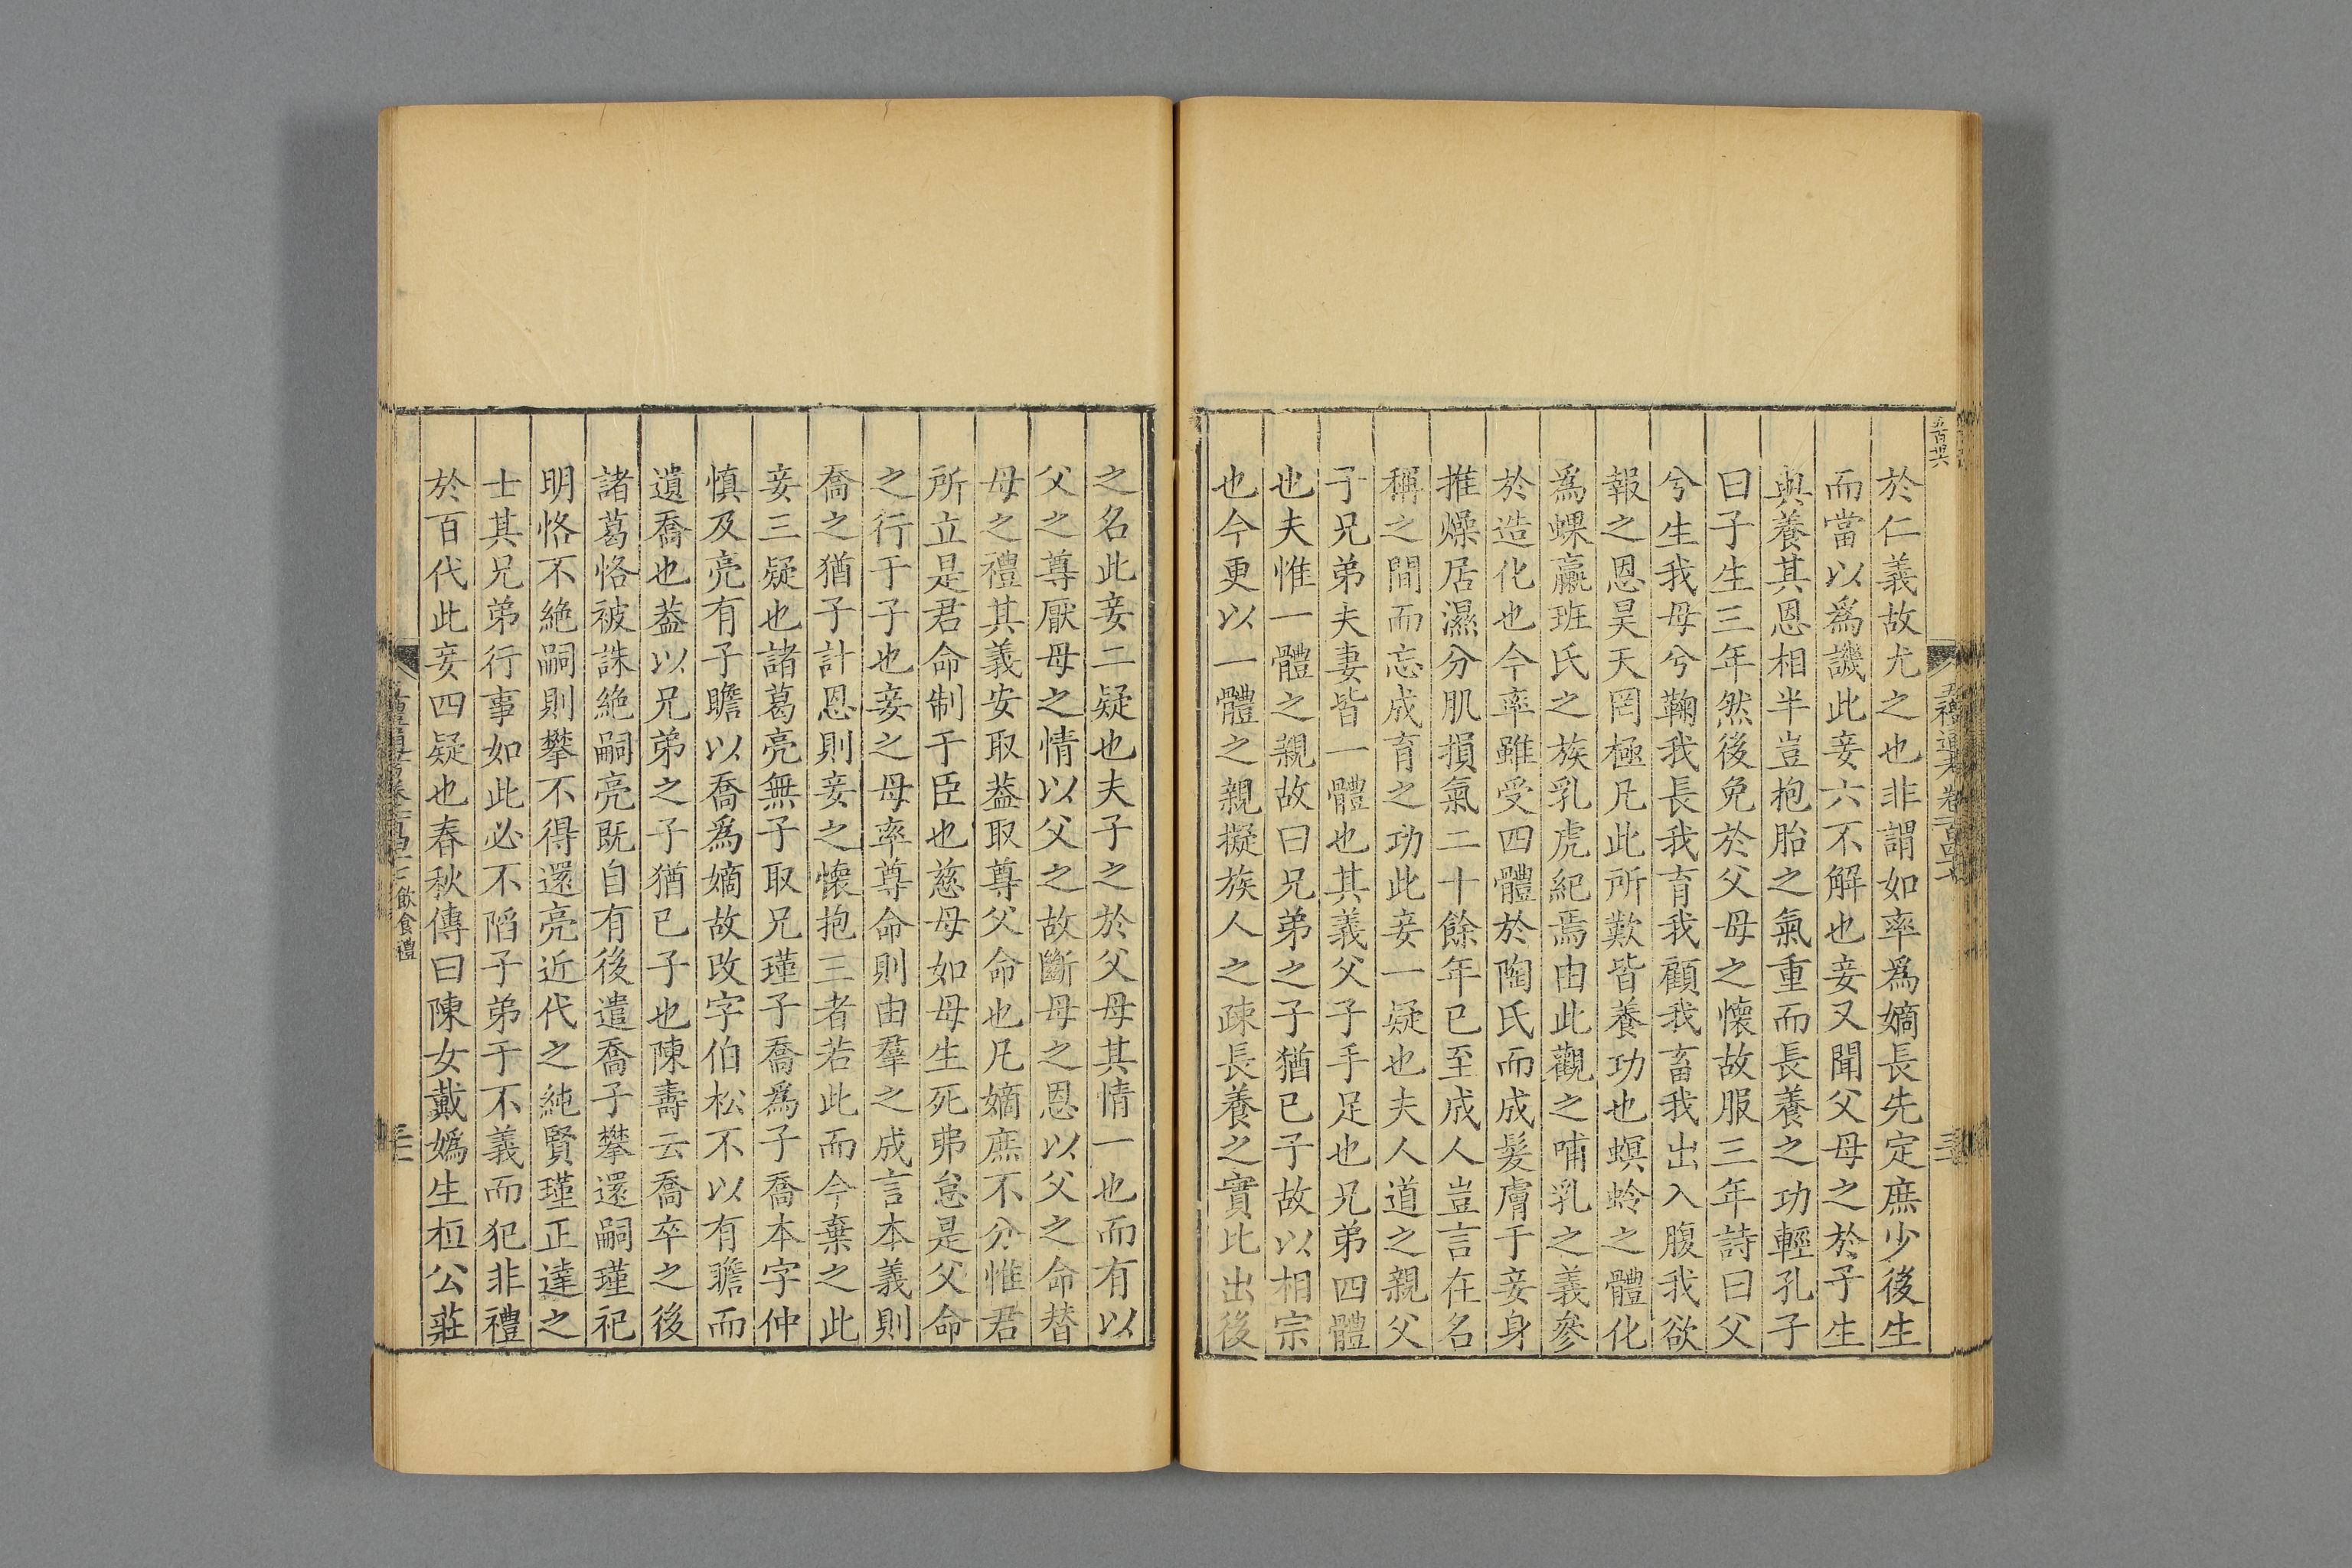 於仁義故尤之也非謂如率爲嫡長先定庶少後生
而當以爲譏此妾六不解也妾又聞父母之於子生
與養其恩相半豈抱胎之氣重而長養之功輕孔子
曰子生三年然後免於父母之懷故服三年詩曰父
兮生我母兮鞠我長我育我顧我畜我出入腹我欲
報之恩昊天罔極凡此所歎皆養功也螟蛉之體化
爲蜾蠃班氏之族乳虎紀焉由此觀之哺乳之義參
於造化也今率雖受四體於陶氏而成髮膚于妾身
推燥居濕分肌損氣二十餘年已至成人豈言在名
稱之間而忘成育之功此妾一疑也夫人道之親父
子兄弟夫妻皆一體也其義父子手足也兄弟四體
也夫惟一體之親故曰兄弟之子猶己子故以相宗
也今更以一體之親擬族人之疎長養之實比出後
之名此妾二疑也夫子之於父母其情一也而有以
父之尊厭母之情以父之故斷母之恩以父之命替
母之禮其義安取葢取尊父命也凡嫡庶不分惟君
所立是君命制于臣也慈母如母生死弗怠是父命
之行于子也妾之母率尊命則由羣之成言本義則
喬之猶子計恩則妾之懷抱三者若此而今棄之此
妾三疑也諸葛亮無子取兄瑾子喬爲子喬本字仲
慎及亮有子瞻以喬爲嫡故改字伯松不以有瞻而
遺喬也葢以兄弟之子猶己子也陳壽云喬卒之後
諸葛恪被誅絶嗣亮既自有後遣喬子攀還嗣瑾祀
明恪不絶嗣則攀不得還亮近代之純賢瑾正達之
士其兄弟行事如此必不陷子弟于不義而犯非禮
於百代此妾四疑也春秋傳曰陳女戴嬀生桓公莊
飲食禮